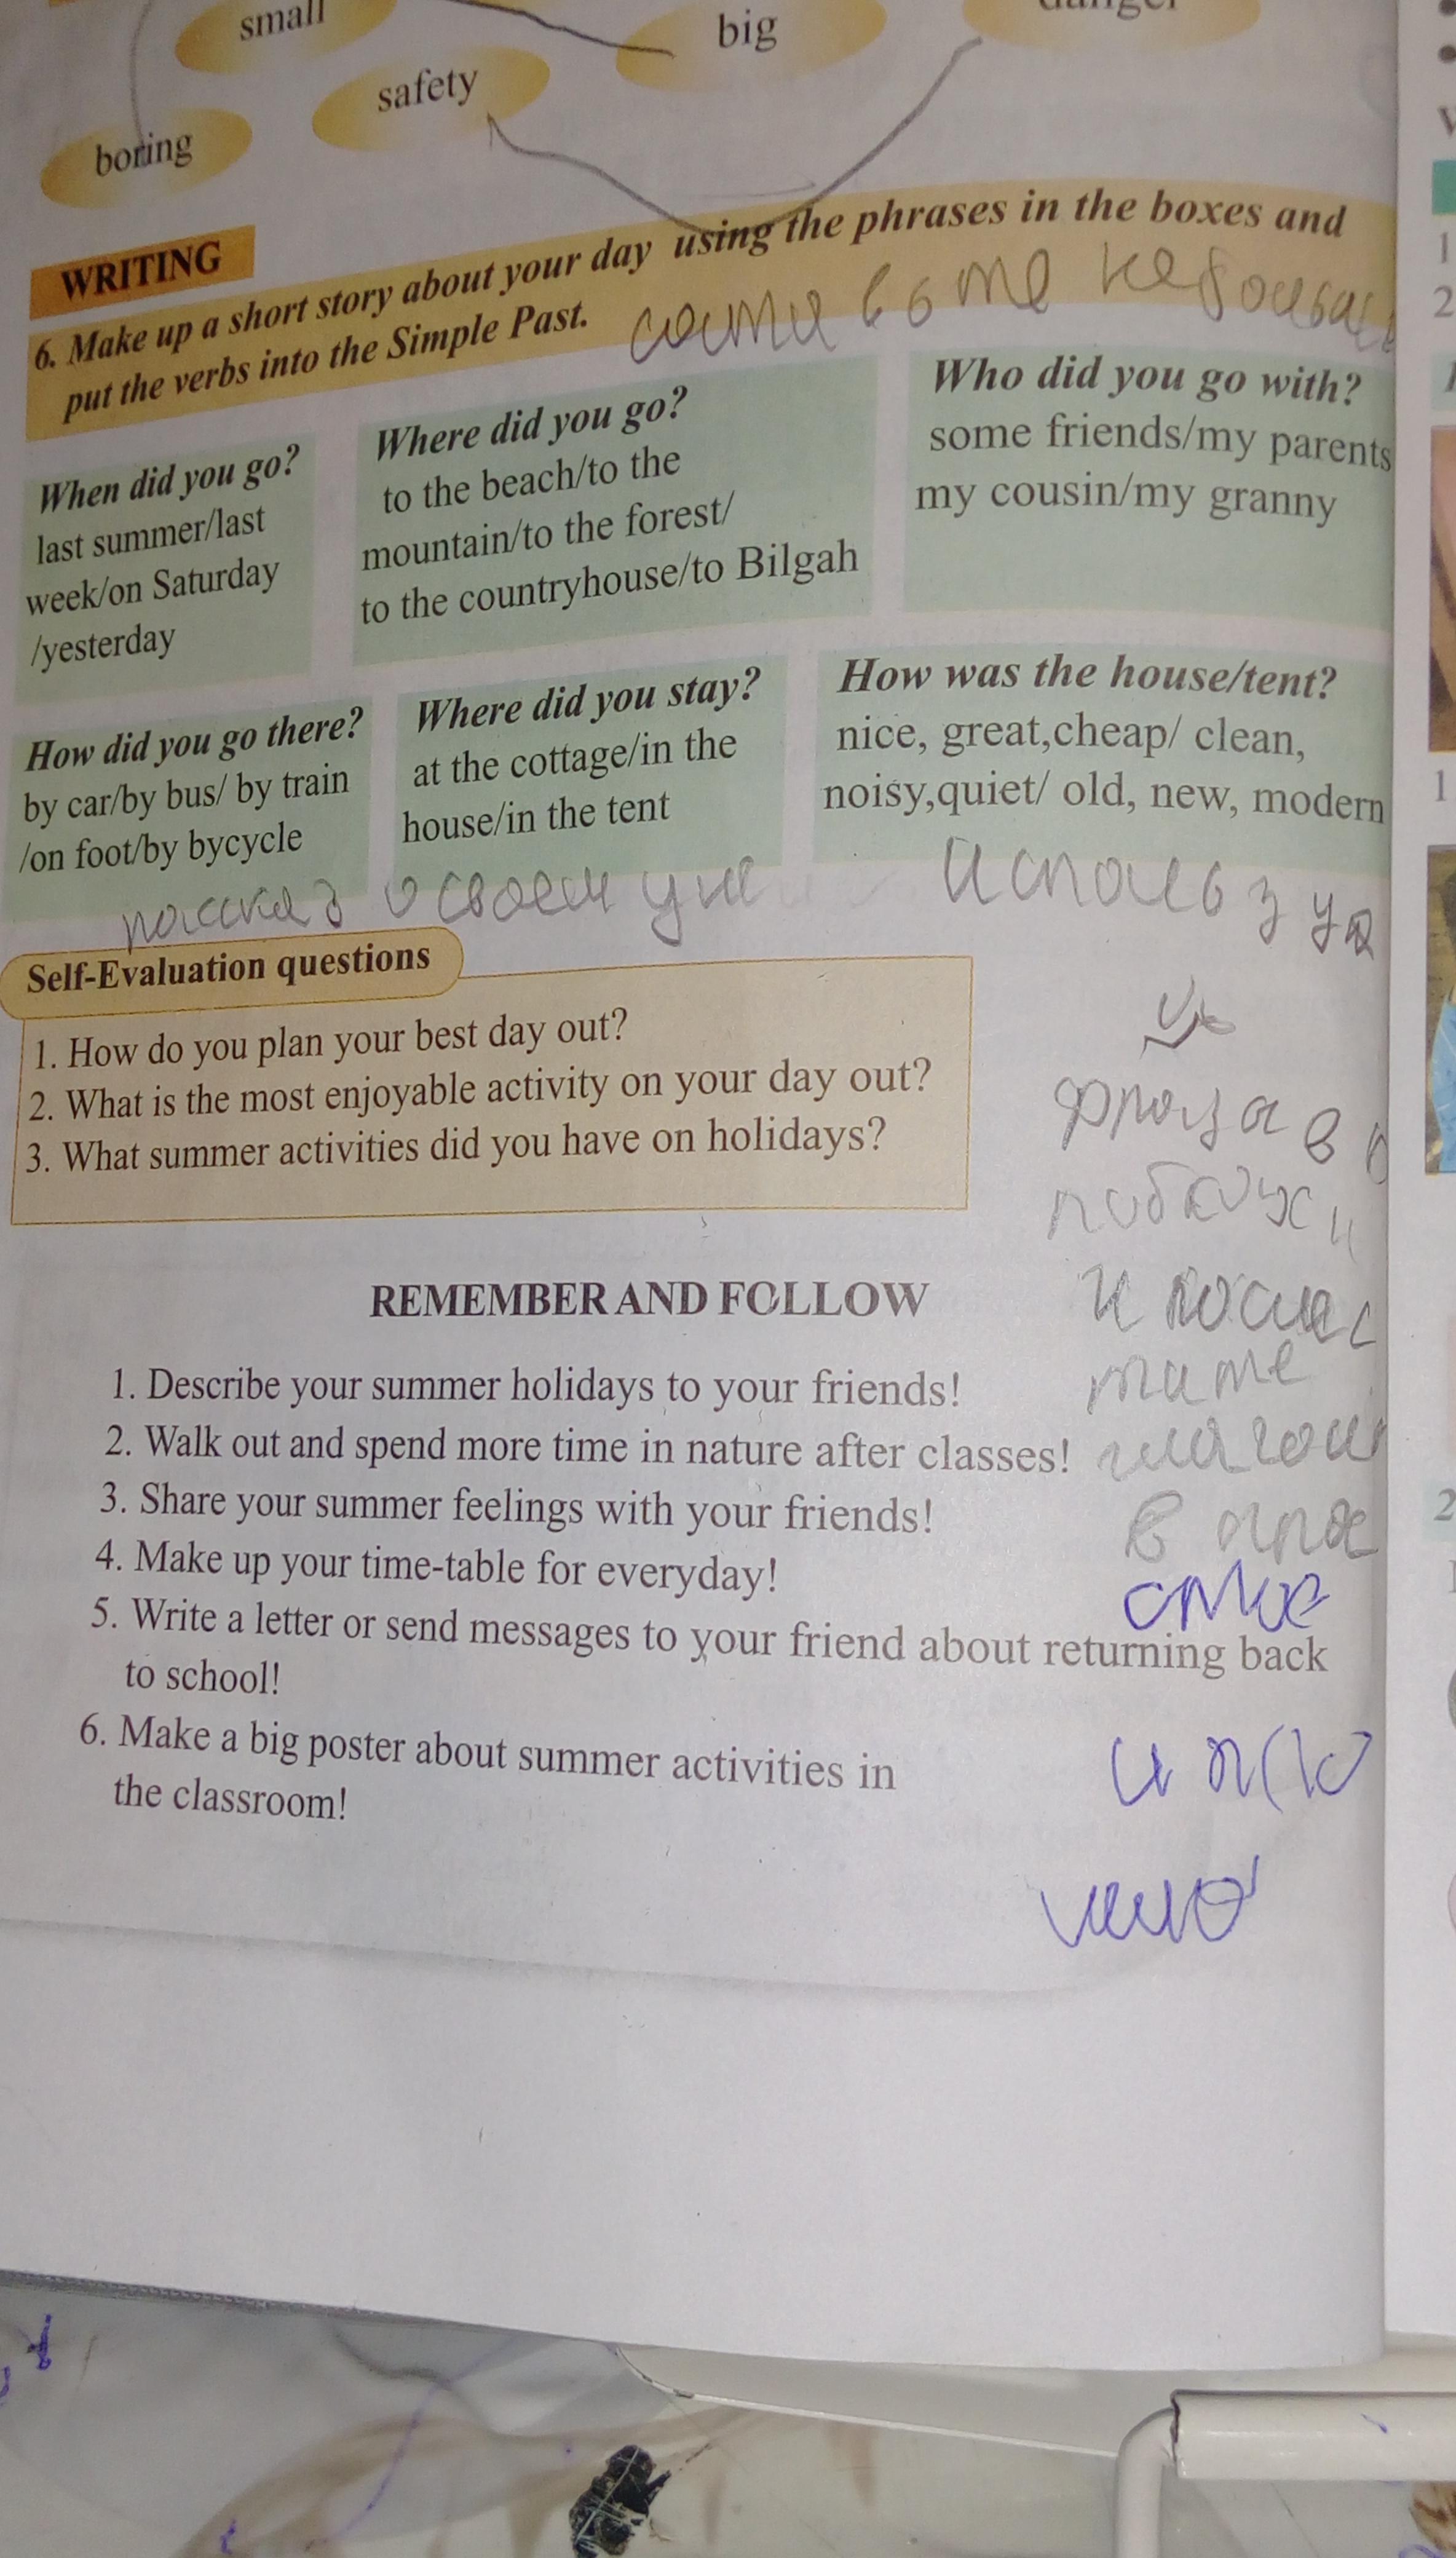 small
big
safety
boring
WRITING
6. Make up a short story about your day using the phrases in the boxes and
put the verbs into the Simple Past.
When did you go?
last summer/last
week/on Saturday
/yesterday
Where did you go?
to the beach/to the
mountain/to the forest/
to the countryhouse/to Bilgah
Who did you go with?
some friends/my parents
my cousin/my granny
How did you go there?
by car/by bus/ by train
/on foot/by bycycle
Where did you stay?
at the cottage/in the
house/in the tent
How was the house/tent?
nice, great,cheap/ clean,
noisy,quiet/ old, new, modern
рассказ о своем
Использ уя
Self-Evaluation questions
1. How do you plan your best day out?
2. What is the most enjoyable activity on your day out?
3. What summer activities did you have on holidays?
REMEMBER AND FOLLOW
1. Describe your summer holidays to your friends!
2. Walk out and spend more time in nature after classes!
3. Share your summer feelings with your friends!
4. Make up your time-table for everyday!
5. Write a letter or send messages to your friend about returning back
to school!
6. Make a big poster about summer activities in
the classroom!